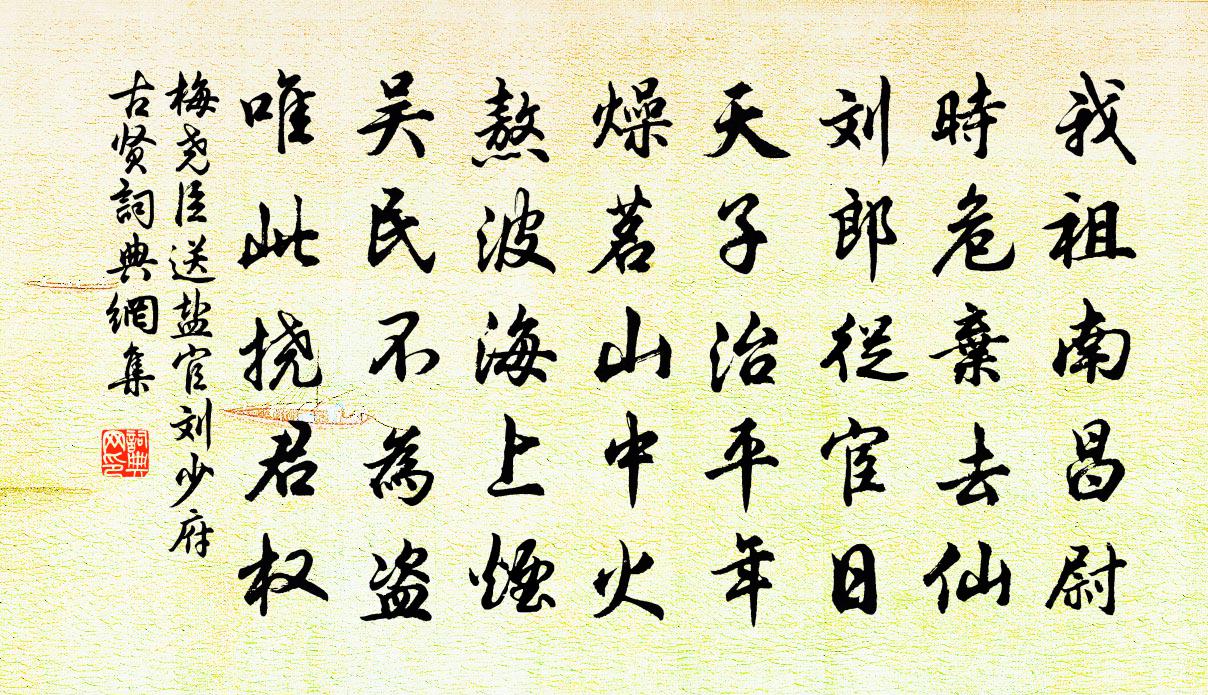 我祖南昌尉
時危棄去仙
刘郎從宦日
天子治平年
燥茗山中火
熬波海上煙
吴民不為盗
唯此挠君权
梅尧臣送盐官刘少府
古贤詞典網集
詞典网印